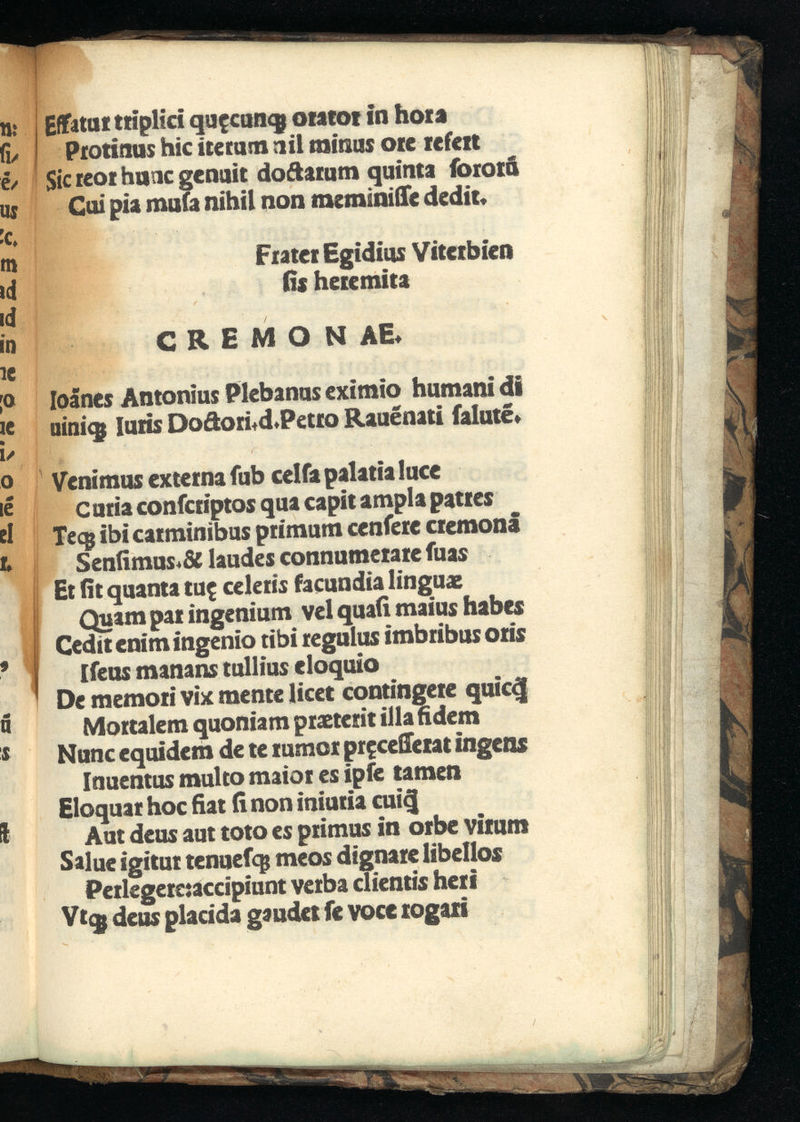 Effatur triplici quęcunqꝫ orator in hora
Protinus hic iterum nil minus ore refert
Sic reor hunc genuit doctarum quinta ſororū
Cui pia muſa nihil non meminiſſe dedit.
Frater Egidius Viterbien
ſis heremita
CREMONAE.
Ioānes Antonius Plebanus eximio humani di
uiniqꝫ Iuris Doctori.d.Petro Rauēnati ſalutē.
Venimus externa ſub celſa palatia luce
Curia conſcriptos qua capit ampla patres
Teqꝫ ibi carminibus primum cenſere cremonā
Senſimus.& laudes connumerare ſuas
Et ſit quanta tuę celeris facundia linguæ
Quam par ingenium vel quaſi maius habes
Cedit enim ingenio tibi regulus imbribus oris
Iſeus manans tullius eloquio
De memori vix mente licet contingere quicq̄
Mortalem quoniam præterit illa fidem
Nunc equidem de te rumor pręceſſerat ingens
Inuentus multo maior es ipſe tamen
Eloquar hoc fiat ſi non iniuria cuiq̄
Aut deus aut toto es primus in orbe virum
Salue igitur tenueſqꝫ meos dignare libellos
Perlegere:accipiunt verba clientis heri
Vtqꝫ deus placida gaudet ſe voce rogari